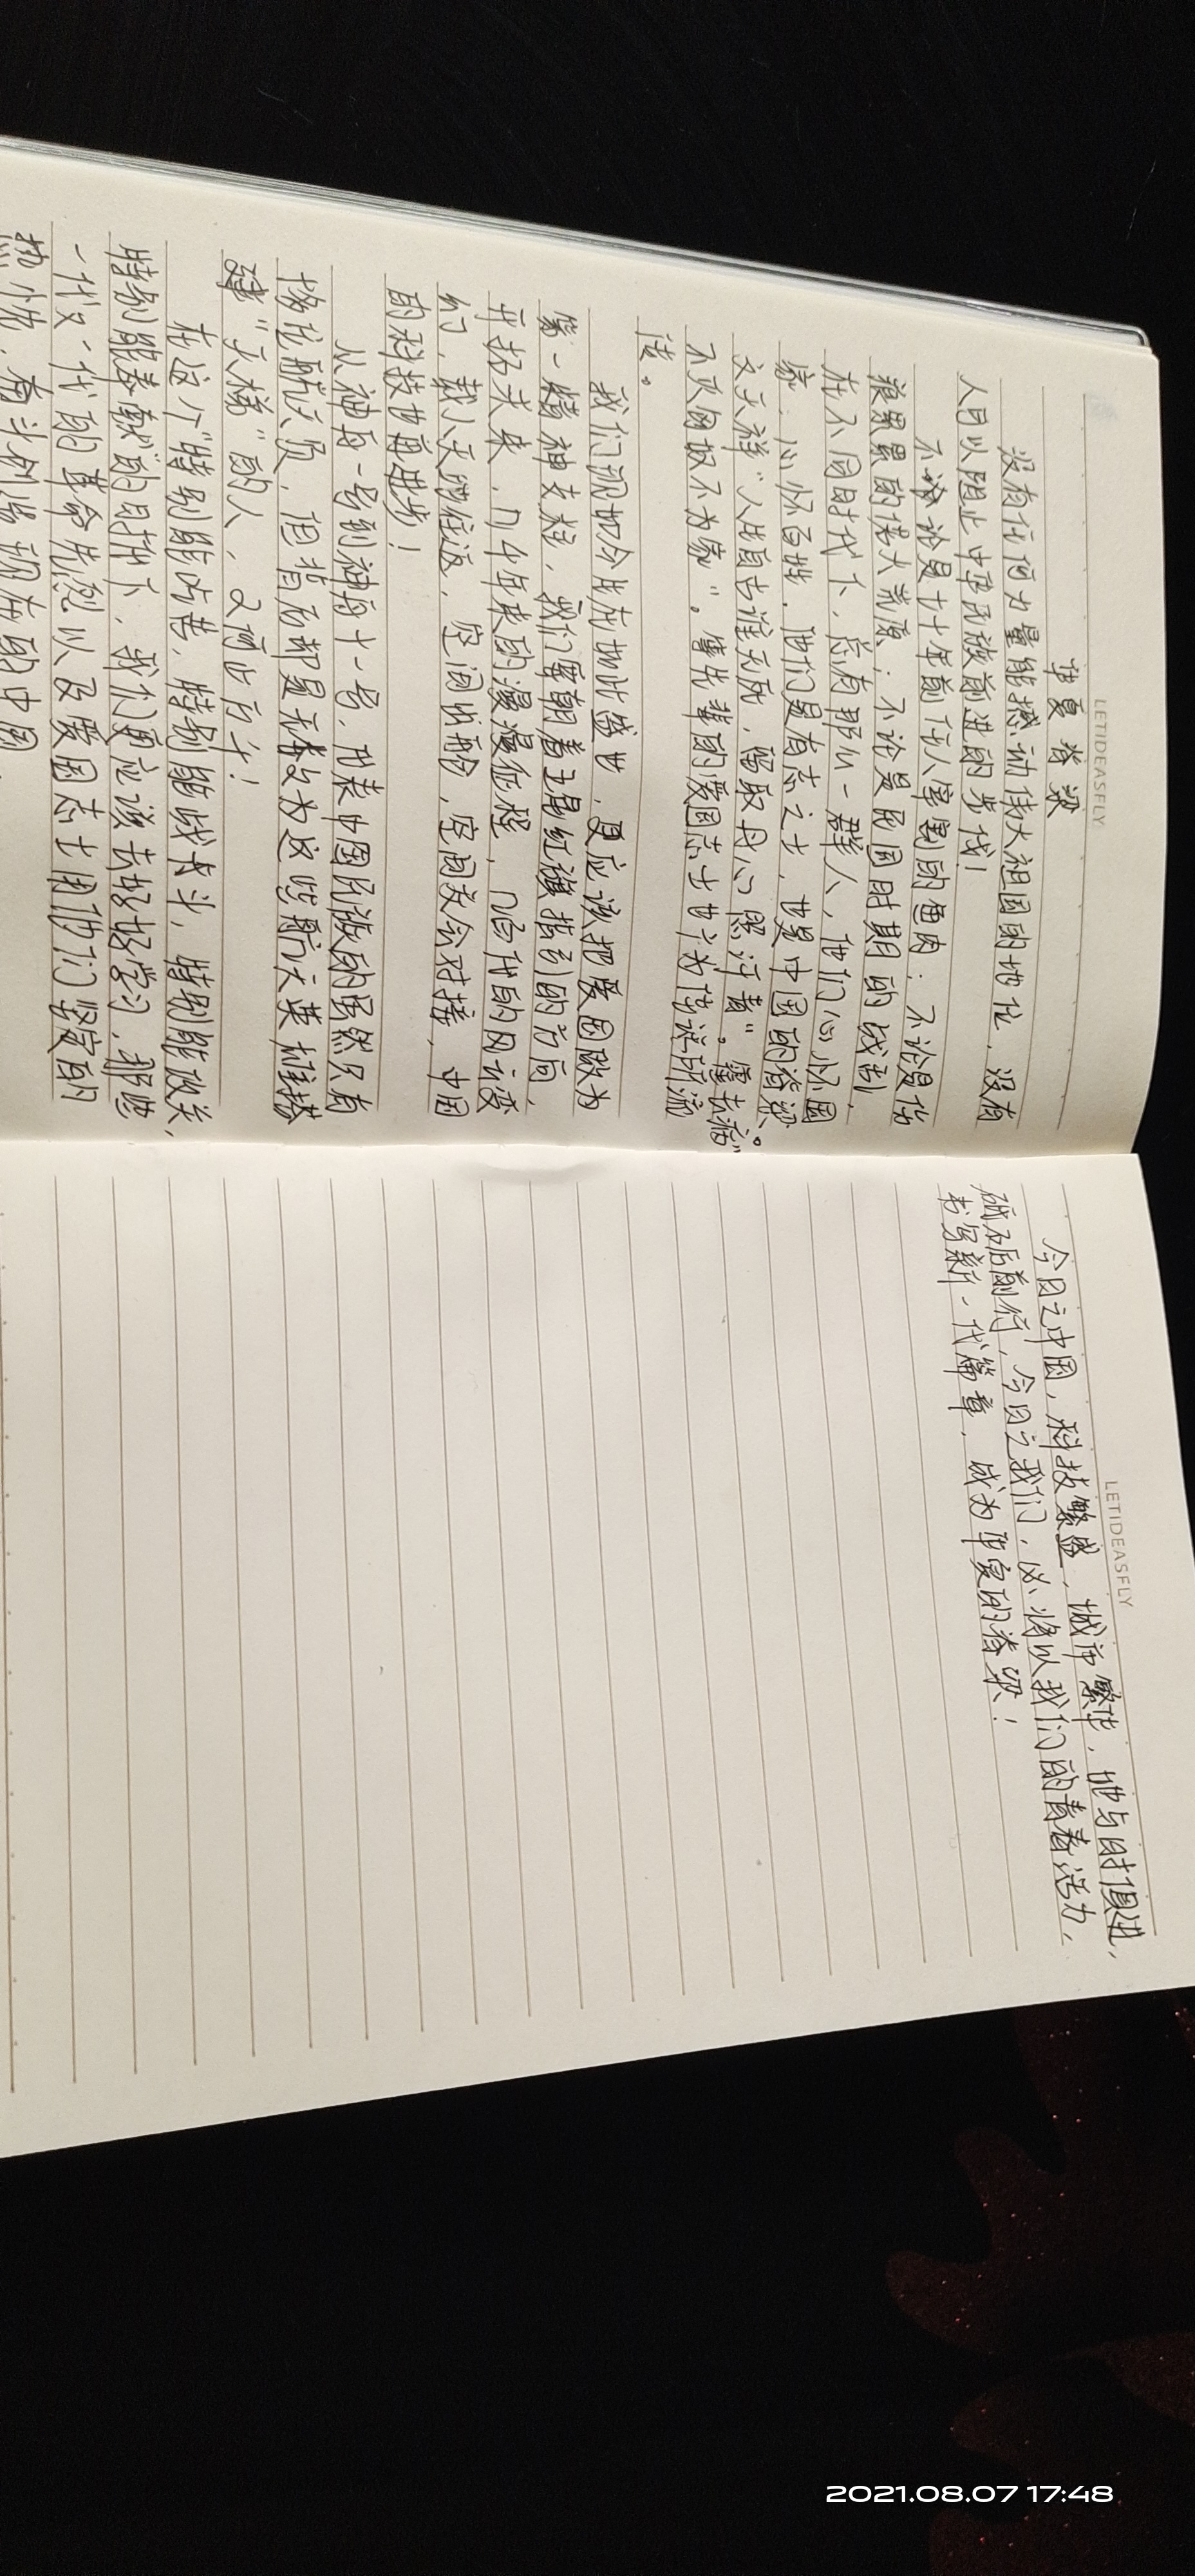 LETIDEASFLY
华夏脊梁
没有任何力量能撼动伟大祖国的地位，没有
人可以阻止中华民族前进的步伐！
不论是七十年前
狼累累的莽大荒原；不论是民国时期的战乱，
在不同时代下，总有那么一群人，他们心怀国
家，心怀百姓，他们是有志之士，也是中国的脊梁。
文天祥"人生自古谁无死，留取丹心照汗青"。霍去病"
不灭匈奴不为家"。革先辈的爱国志士也广为传诵所流
传。
我们现如今生在如此盛世，更应该把爱国做为
第一精神支柱，我们要朝着五星红旗指引的方向，
开拓未来，几十年来的漫漫征程，几百日的风云变
幻，载人天地往返，空间出舱，空间交会对接，中国
的科技也再进步！
从神舟一号到神舟十一号，代表中国民族的虽然只有
撑起航天员，但背后却是无数为这些航天英雄搭
建"天梯"的人，又何止百千！
在这个"特别能吃苦，特别能战斗，特别能攻关，
特别能奉献"的时代下，我们更应该去好好学习，那些
一代又一代的革命先烈以及爱国志士用他们坚定的
LETIDEASFLY
今日之中国，科技繁盛，城市繁华，她与时俱进，
砥砺前行，今日之我们，必将以我们的青春活力，
书写新一代篇章，成为华夏的脊梁！
2021.08.07 17:48